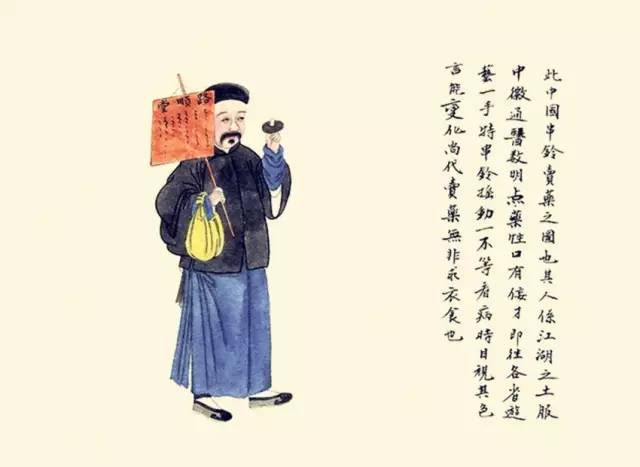 路順堂
此中國串鈴賣藥之圖也其人係江湖之士服
中微通醫数明点藥性口有佞才即往各省遊
藝一手持串鈴摇動一不等看病時目視其色
言能變化尚代賣藥無非求衣食也